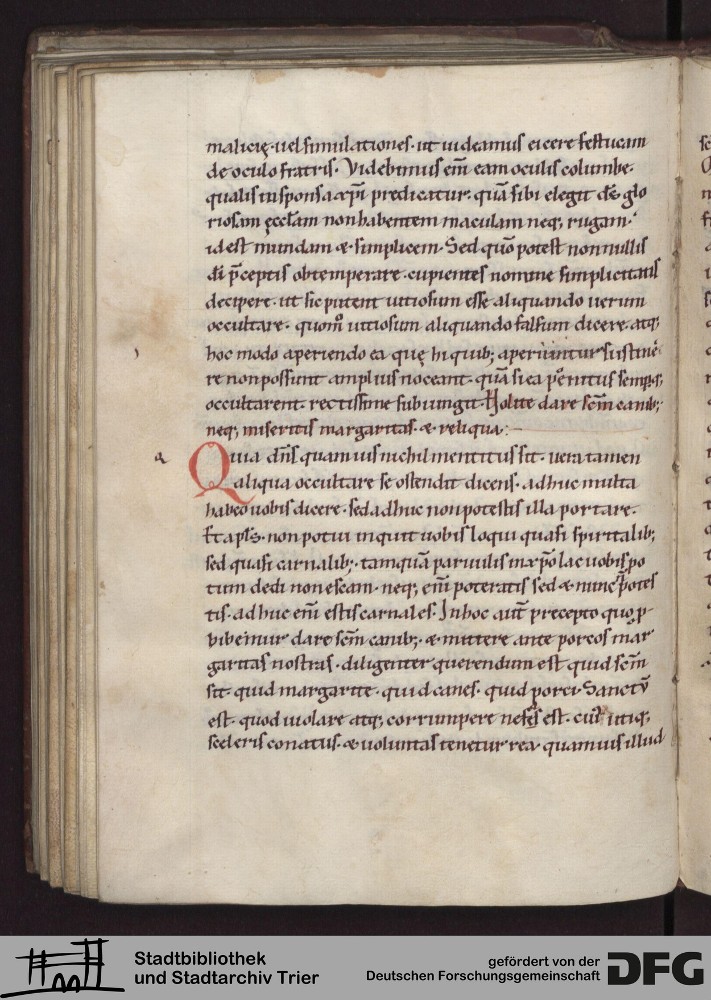 malicię· uel simulationes· ut uideamus eicere festucam
de oculo fratris· Videbimus eni̅ eam oculis columbe·
qualis in sponsa xp̅i predicatur· qua̅ sibi elegit d̅s glo
riosam ęccl̅am non habentem maculam neq; rugam·
id est mundam & simplicem· Sed quo̅ potest nonnullis
d̅i p̅ceptis obtemperare· cupientes nomine simplicitatis
decipere· ut sic putent uitiosum esse aliquando uerum
occultare· quom̊ uitiosum aliquando falsum dicere· atq;
hoc modo aperiendo ea quę hi quib; aperiuntur sustine
re non possunt amplius noceant· qua̅ si ea penitus semp
occultarent· rectissime subiungit· Nolite dare sc̅m canib;
neq; miseritis margaritas· & reliqua·
Quia dn̅s quamuis nichil mentitus sit· uera tamen
aliqua occultare se ostendit dicens· adhuc multa
habeo uobis dicere· sed adhuc non potestis illa portare·
Et apl̅s· non potui inquit uobis loqui quasi spiritalib;
sed quasi carnalib;· tamqua̅ paruulis in xp̅o lac uobis po
tum dedi non escam· neq; eni̅ poteratis sed & nunc potes
tis· adhuc eni̅ estis carnales· In hoc aut̅ precepto quo p
hibemur dare sc̅m canib;· & mittere ante porcos mar
garitas nostras· diligenter querendum est quid sc̅m
sit· quid margarite· quid canes· quid porci· Sanctu̅
est· quod uiolare atq; corrumpere nefas est· cui᷒ utiq;
sceleris conatus· & uoluntas tenetur rea· quamuis illud
a
Stadtbibliothek
und Stadtarchiv Trier
gefördert von der
Deutschen Forschungsgemeinschaft
DFG